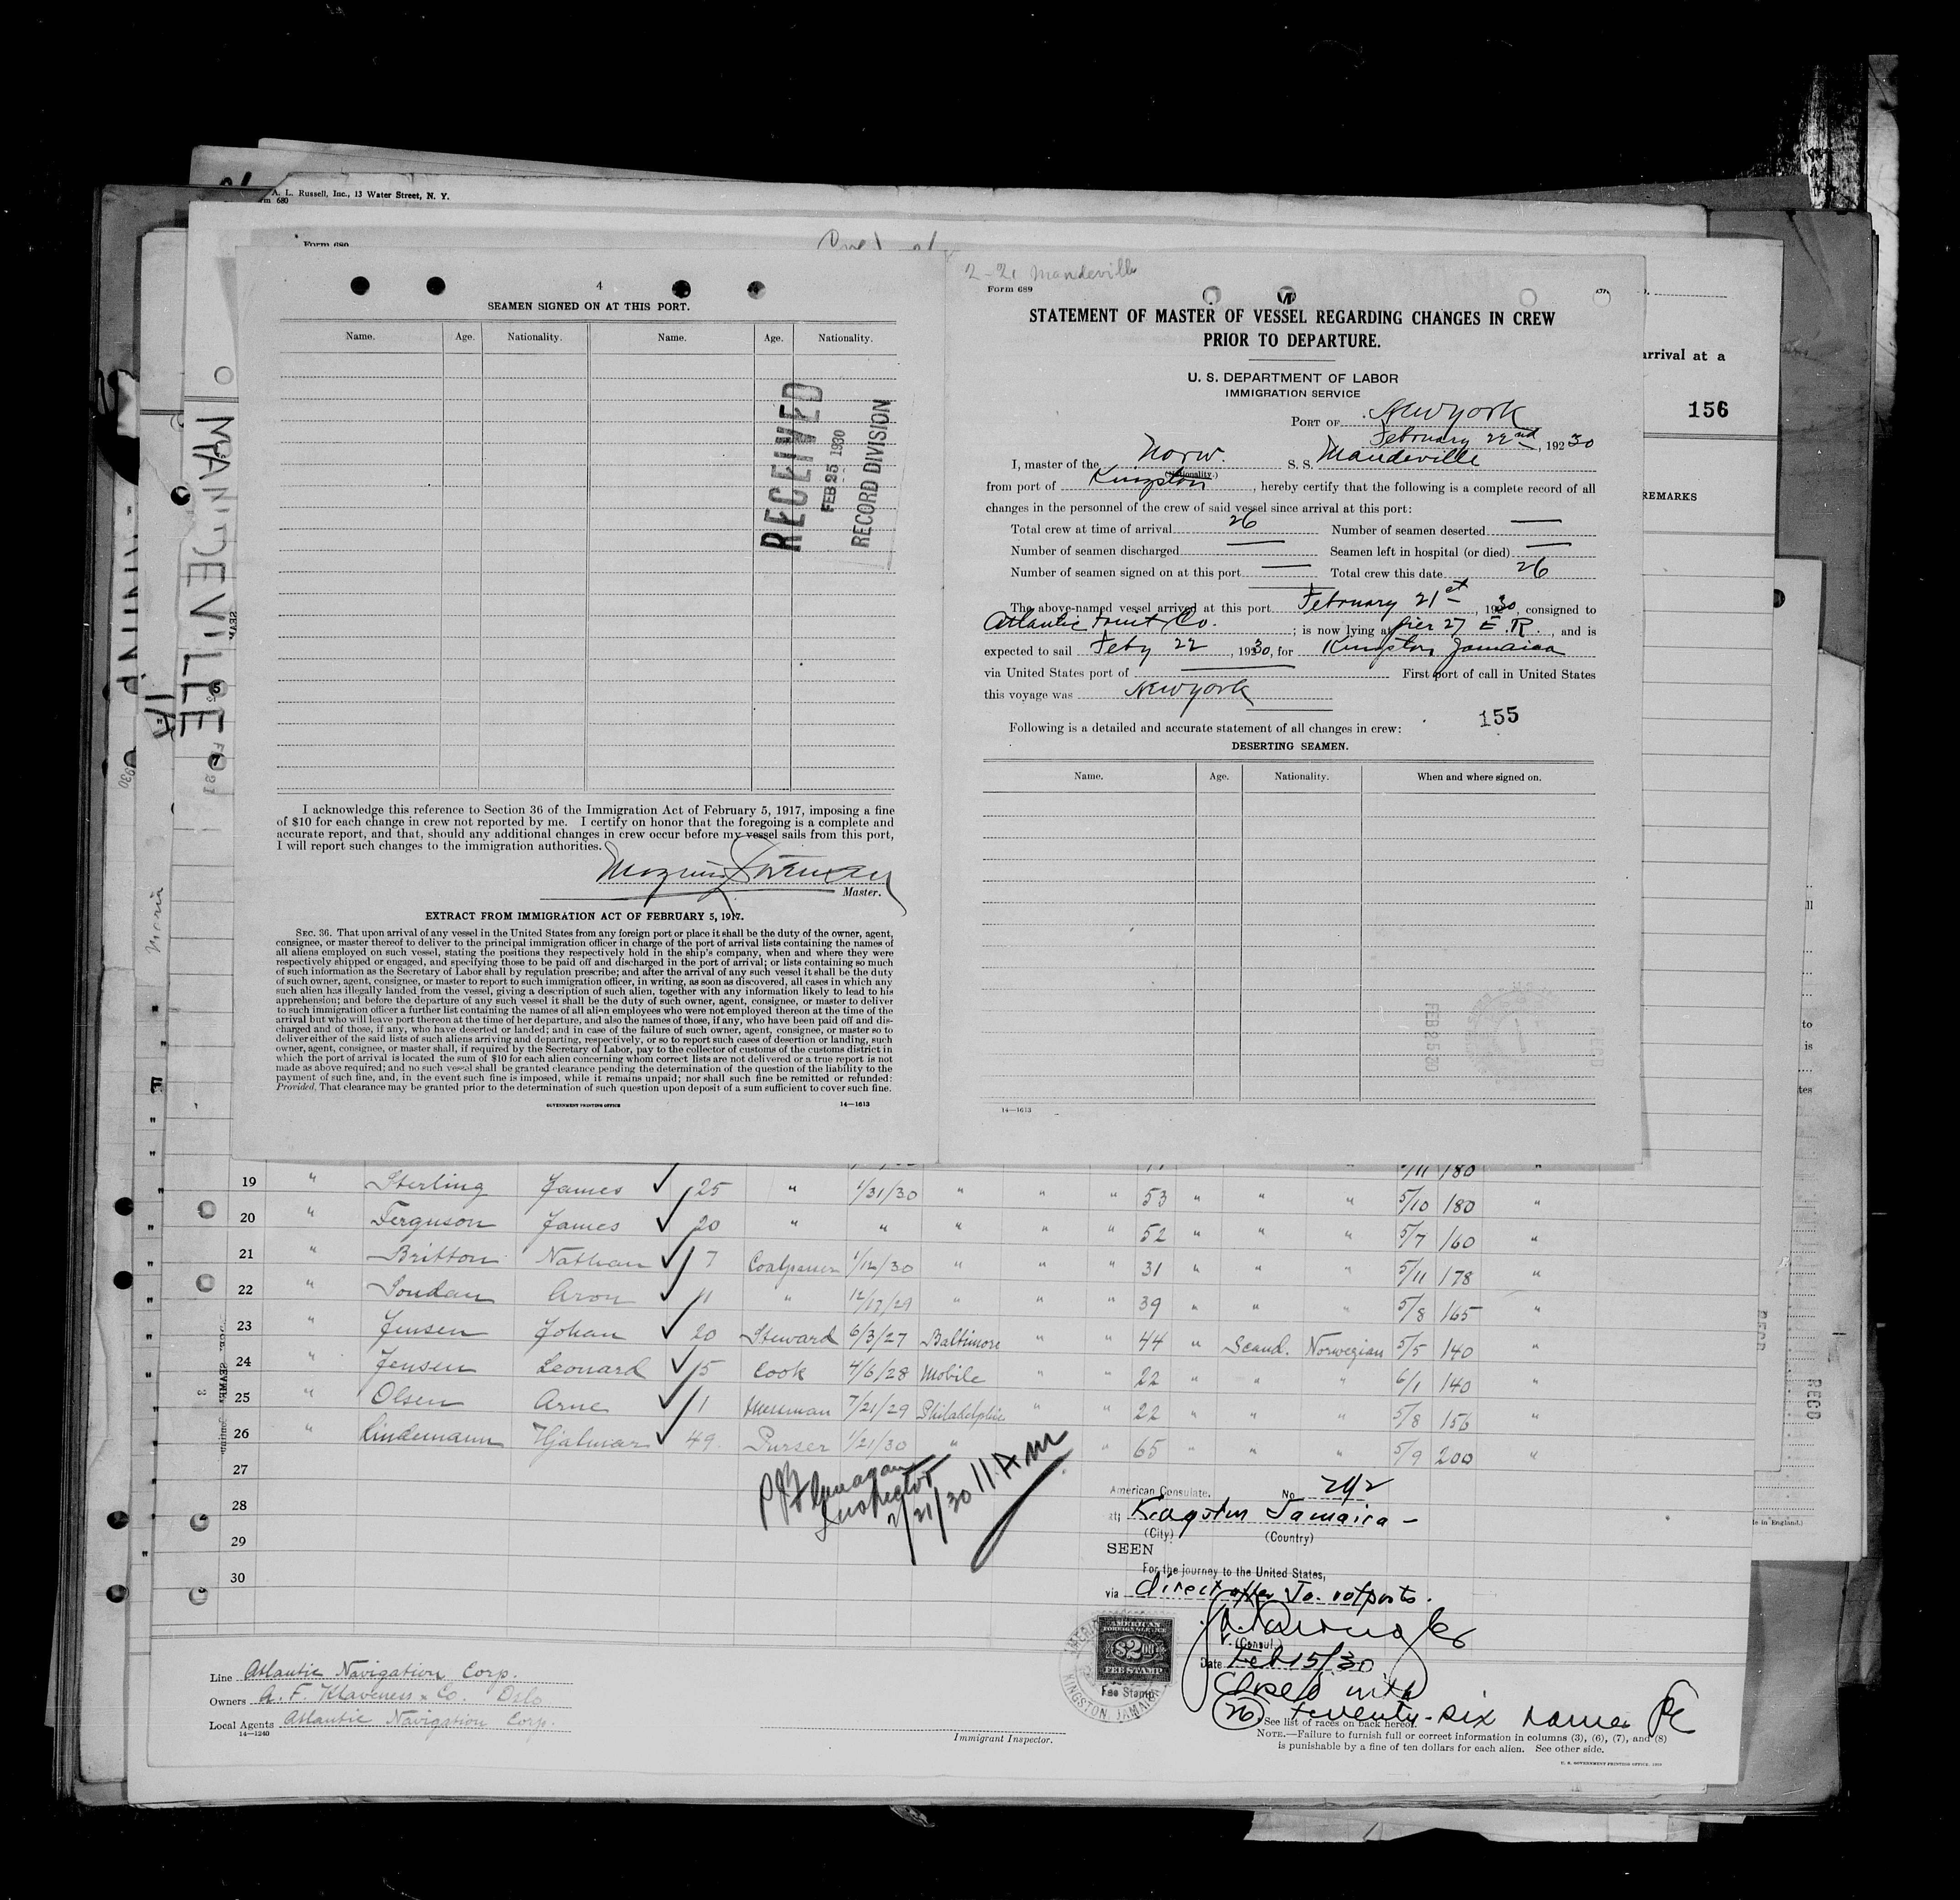 A. L. Russell, Inc., 13 Water Street, N. Y.
rm 680
Form 689
4
SEAMEN SIGNED ON AT THIS PORT.
Name. Age. Nationality. Name. Age. Nationality.
RECEIVED
FEB 25 1930
RECORD DIVISION
I acknowledge this reference to Section 36 of the Immigration Act of February 5, 1917, imposing a fine
of $10 for each change in crew not reported by me. I certify on honor that the foregoing is a complete and
accurate report, and that, should any additional changes in crew occur before my vessel sails from this port,
I will report such changes to the immigration authorities.
Master.
EXTRACT FROM IMMIGRATION ACT OF FEBRUARY 5, 1917.
SEC. 36. That upon arrival of any vessel in the United States from any foreign port or place it shall be the duty of the owner, agent,
consignee, or master thereof to deliver to the principal immigration officer in charge of the port of arrival lists containing the names of
all aliens employed on such vessel, stating the positions they respectively hold in the ship's company, when and where they were
respectively shipped or engaged, and specifying those to be paid off and discharged in the port of arrival; or lists containing so much
of such information as the Secretary of Labor shall by regulation prescribe; and after the arrival of any such vessel it shall be the duty
of such owner, agent, consignee, or master to report to such immigration officer, in writing, as soon as discovered, all cases in which any
such alien has illegally landed from the vessel, giving a description of such alien, together with any information likely to lead to his
apprehension; and before the departure of any such vessel it shall be the duty of such owner, agent, consignee, or master to deliver
to such immigration officer a further list containing the names of all alien employees who were not employed thereon at the time of the
arrival but who will leave port thereon at the time of her departure, and also the names of those, if any, who have been paid off and dis-
charged and of those, if any, who have deserted or landed; and in case of the failure of such owner, agent, consignee, or master so to
deliver either of the said lists of such aliens arriving and departing, respectively, or so to report such cases of desertion or landing, such
owner, agent, consignee, or master shall, if required by the Secretary of Labor, pay to the collector of customs of the customs district in
which the port of arrival is located the sum of $10 for each alien concerning whom correct lists are not delivered or a true report is not
made as above required; and no such vessel shall be granted clearance pending the determination of the question of the liability to the
payment of such fine, and, in the event such fine is imposed, while it remains unpaid; nor shall such fine be remitted or refunded:
Provided, That clearance may be granted prior to the determination of such question upon deposit of a sum sufficient to cover such fine.
GOVERNMENT PRINTING OFFICE 14—1613
2-21 Mandeville
Form 689
STATEMENT OF MASTER OF VESSEL REGARDING CHANGES IN CREW
PRIOR TO DEPARTURE.
U. S. DEPARTMENT OF LABOR
IMMIGRATION SERVICE
PORT OF New York
February 22nd, 1930
I, master of the Norw. S. S. Mandeville
(Nationality.)
from port of Kingston, hereby certify that the following is a complete record of all
changes in the personnel of the crew of said vessel since arrival at this port:
Total crew at time of arrival 26 Number of seamen deserted —
Number of seamen discharged — Seamen left in hospital (or died) —
Number of seamen signed on at this port — Total crew this date 26
The above-named vessel arrived at this port February 21st, 1930, consigned to
Atlantic Fruit Co. ; is now lying at pier 27 E.R., and is
expected to sail Feby 22, 1930, for Kingston Jamaica
via United States port of — First port of call in United States
this voyage was New York
155
Following is a detailed and accurate statement of all changes in crew:
DESERTING SEAMEN.
Name. Age. Nationality. When and where signed on.
FEB 25 30
RECD
14—1613
arrival at a
156
REMARKS
MANDEVILLE
5/11 180
19 " Sterling James ✓ 25 " 1/31/30 " " " 53 " " " 5/10 180 "
20 " Ferguson James ✓ 20 " " " " " 52 " " " 5/7 160 "
21 " Britton Nathan ✓ 7 Coalpasser 1/12/30 " " " 31 " " " 5/11 178 "
22 " Soudan Aron ✓ 11 " 12/17/29 " " " 39 " " " 5/8 165 "
23 " Jensen Johan ✓ 20 Steward 6/3/27 Baltimore " " 44 " Scand. Norwegian 5/5 140 "
24 " Jensen Leonard ✓ 5 Cook 4/6/28 Mobile " " 22 " " " 6/1 140 "
25 " Olsen Arne ✓ 1 Messman 7/21/29 Philadelphia " " 22 " " " 5/8 156 "
26 " Lindemann Hjalmar ✓ 49 Purser 1/21/30 " " 65 " " " 5/9 200 "
27
28
29
30
Flanagan
Inspector
2/21/30 11 AM
American Consulate, No 292
at Kingston Jamaica -
(City) (Country)
SEEN
For the journey to the United States,
via direct after Ja. outports.
V. (Consul.)
Date Feb 15/30
Closed with
(26) twenty-six names
AMERICAN
FOREIGN SERVICE
$2.00
FEE STAMP
Fee Stamp
KINGSTON, JAMAICA
Line Atlantic Navigation Corp.
Owners A. F. Klaveness & Co. Oslo
Local Agents Atlantic Navigation Corp.
14—1240
Immigrant Inspector.
See list of races on back hereof.
NOTE.—Failure to furnish full or correct information in columns (3), (6), (7), and (8)
is punishable by a fine of ten dollars for each alien. See other side.
RECD